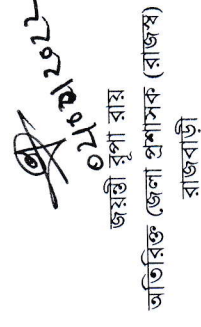 ০২/০৮/২০২২
জয়ন্তী রূপা রায়
অতিরিক্ত জেলা প্রশাসক (রাজস্ব)
রাজবাড়ী